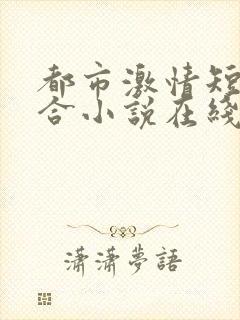 都市激情短
合小說在綫
瀟瀟夢語